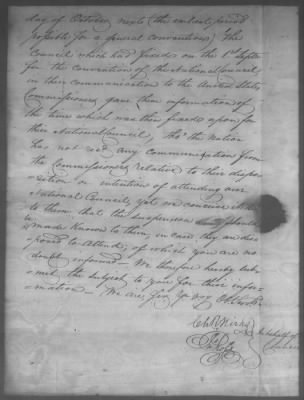 day of October next (the earliest period
probable for a general convention) The
Council which had fixed on the 1st Septr
for the convention of the National Council
in their communication to the United States
Commissioners gave them information of
the time which was then fixed upon for
their National Council, tho' the Nation
has not recd any communication from
the Commissioners relative to their dispo-
sition or intention of attending our
National Council, yet we conceive it due
to them that the suspension should
be made known to them, in case they are dis-
posed to attend, of which you are no
doubt informed — We therefore hereby sub-
mit the subject to you for their infor-
mation — We are Sir Yr very Obt
Ch R Hicks
in behalf of